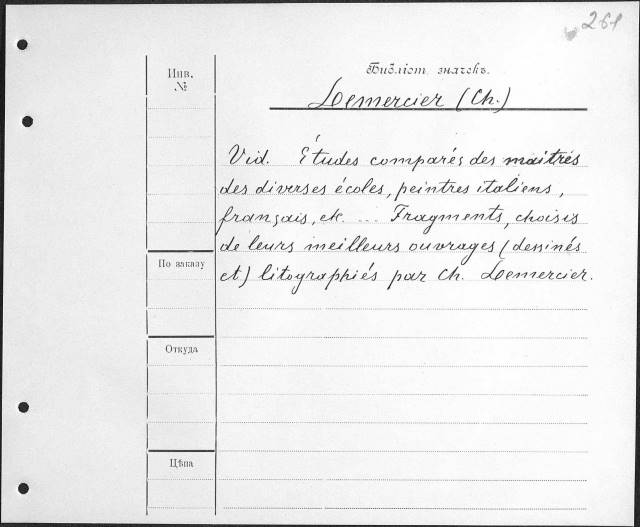 261
Инв.
№
Библіот. значекъ.
Lemercier (Ch.)
Vid. Études comparés des maitres
des diverses écoles, peintres italiens,
français, etc. ... Fragments, choisis
de leurs meilleurs ouvrages (dessinés
et) litographiés par Ch. Lemercier.
По заказу
Откуда
Цѣна